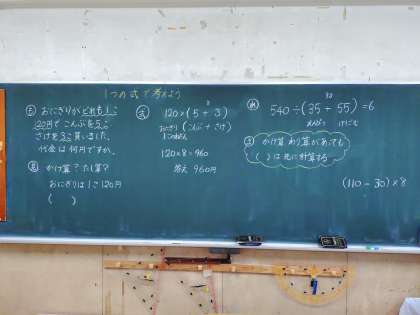 1つの式で考えよう
も おにぎりがどれも1こ
120円で こんぶを5こ
さけを3こ 買いました。
代金は何円ですか。
見 かけ算?たし算?
おにぎりは1こ120円
(   )
式 120×(5+3)
8
おにぎり (こんぶ+さけ)
120×8=960
答え 960円
90
540÷(35+55)=6
えんぴつ けしごむ
ま かけ算 わり算があっても
( )は先に計算する
(110-30)×8